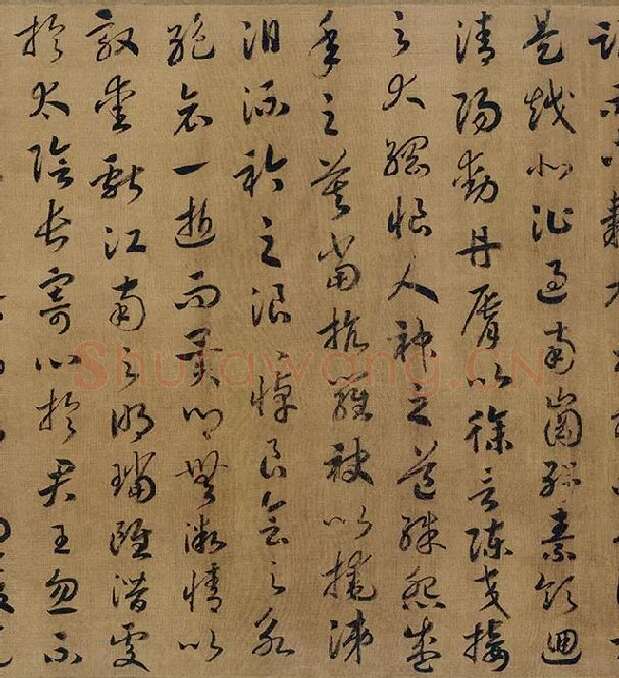 是越北沚過南崗紆素領迴
清陽動丹脣以徐言陳交接
之大綱恨人神之道殊怨盛
年之莫當抗羅袂以掩涕
泪流衿之浪〻悼良會之永
絕哀一逝而異鄉無微情以
效愛獻江南之明璫雖潛處
於太陰長寄心於君王忽不
Shufawang.CN